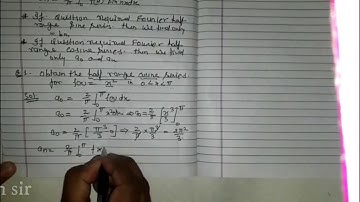 * If Question required Fourier half-
range sine series then we find only
= bn.
* If Question required Fourier half
range cosine series. then we find
only a0 and an
Q.1. obtain the half range cosine series
for f(x) = x² in 0<x<π
Sol: a0 = 2/π ∫0^π f(x) dx
a0 = 2/π ∫0^π x² dx ⇒ a0 = 2/π [x³/3]0^π
a0 = 2/π [π³/3 - 0] ⇒ 2/π × π³/3 = 2π²/3
an = 2/π ∫0^π f
sir